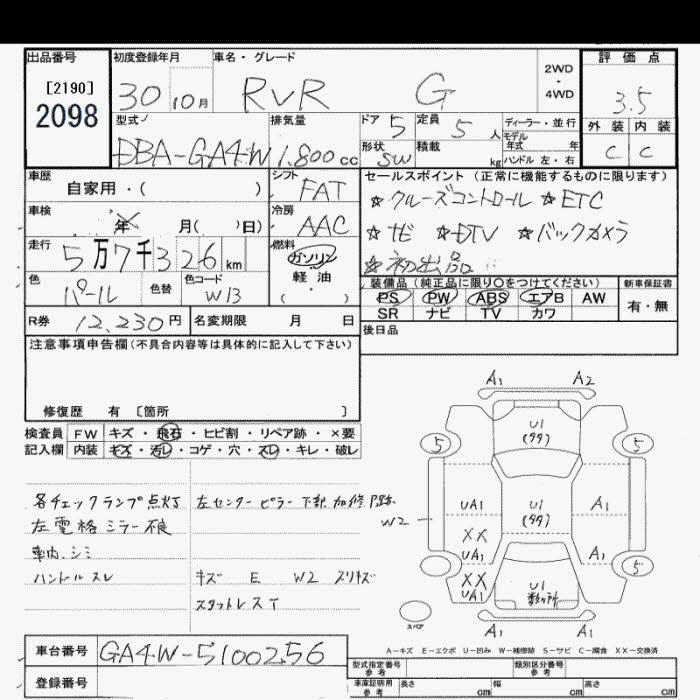 出品番号 初度登録年月 車名・グレード 2WD・4WD 評価点
[2190]
2098
30 10月 RVR G 3.5
型式 排気量 ドア 5 定員 5人 ディーラー・並行 外装 内装
DBA-GA4W 1.800cc 形状 SW 積載 kg モデル年式 年 ハンドル 左・右 C C
車歴 シフト セールスポイント (正常に機能するものに限ります)
自家用・( ) FAT ☆クルーズコントロール ☆ETC
車検 年 月( 日) 冷房 AAC ☆ナビ ☆DTV ☆バックカメラ
走行 5万7千326km 燃料 ガソリン 軽油・( ) ☆初出品
色 パール 色替 色コード W13 装備品 (純正品に限り○をつけてください) 新車保証書
PS PW ABS エアB AW 有・無
SR ナビ TV カワ
R券 12,230円 名変期限 月 日 後日品
注意事項申告欄(不具合内容等は具体的に記入して下さい)
修復歴 有 〔箇所 〕
検査員 FW キズ・飛石・ヒビ割・リペア跡・×要
記入欄 内装 キズ・汚レ・コゲ・穴・スレ・キレ・破レ
各チェックランプ点灯 左センターピラー下部加修
左電格ミラー不良
車内、シミ
ハンドルスレ キズ E W2 スリキズ
スタットレスT
A1 A2
U1
(タタ)
5 5
UA1 U1 A1
W2 (タタ)
XX
UA1 A1
5
XX U1
UA1 数ヶ所
スペア A1 A1
A-キズ E-エクボ U-凹み W-補修跡 S-サビ C-腐食 XX-交換済
車台番号 GA4W-5100256
型式指定番号 参考 類別区分番号 参考
登録番号 車庫証明用 参考 長さ cm 幅 cm 高さ cm